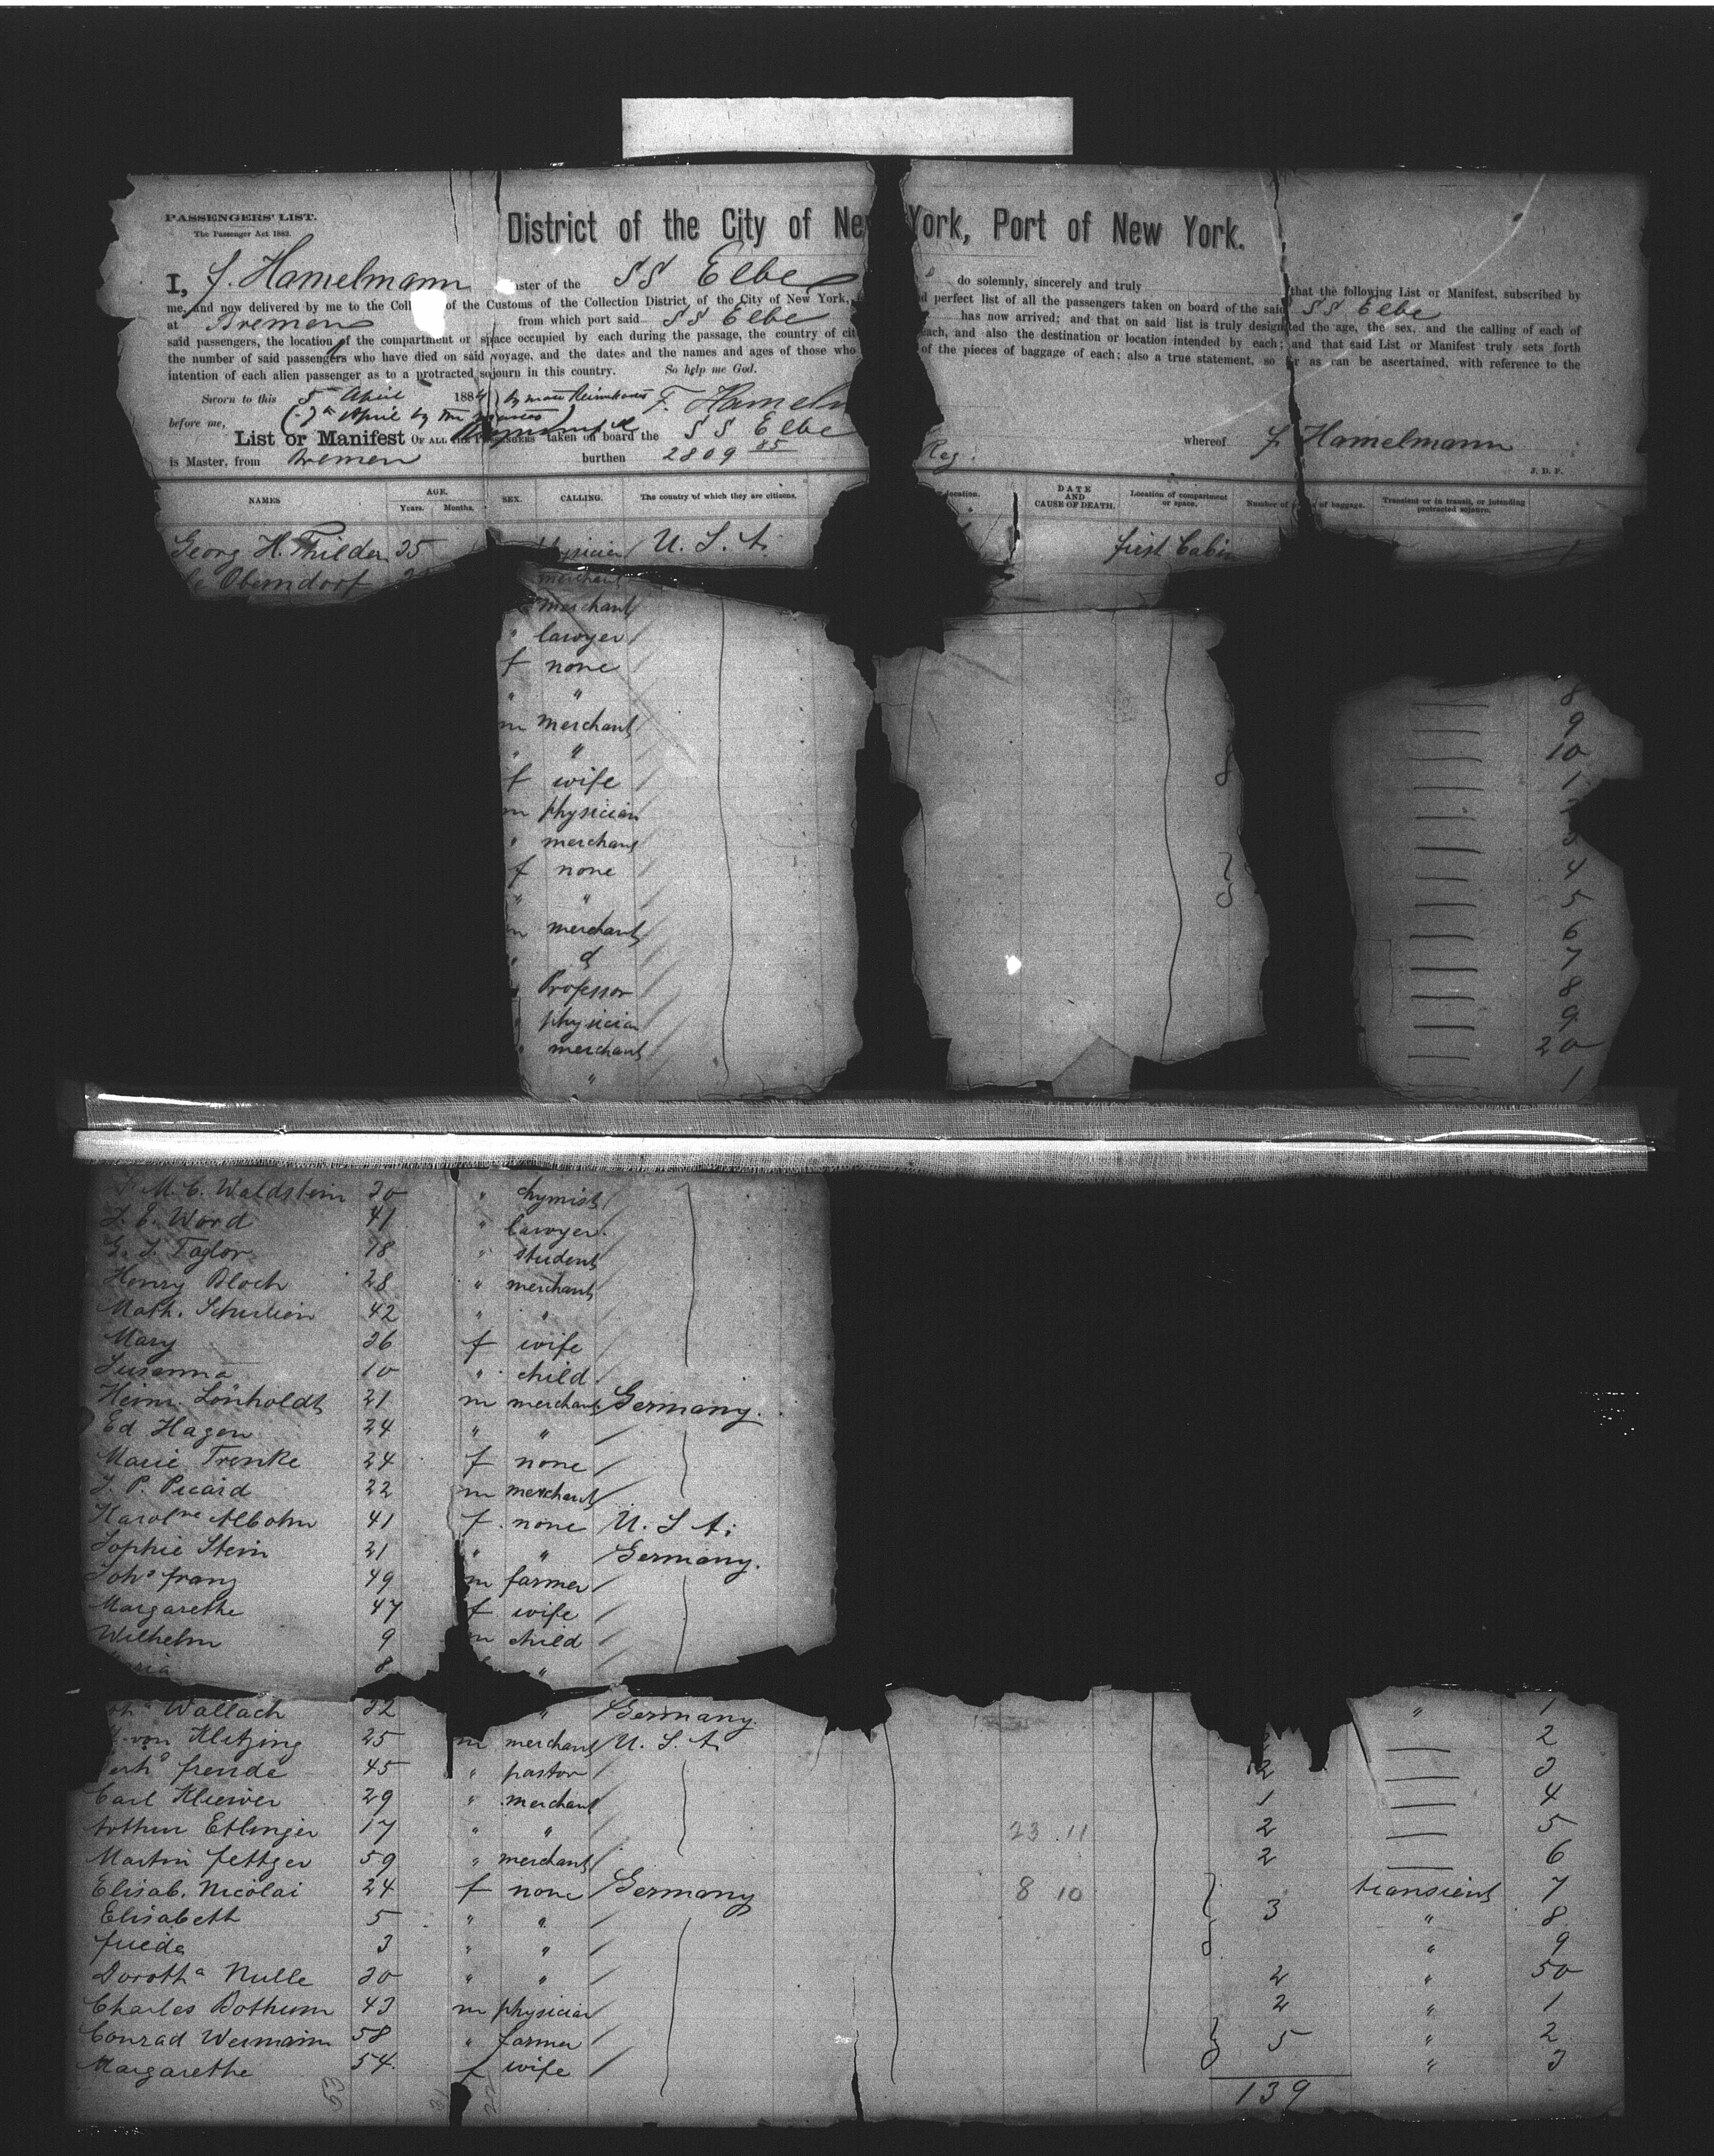 PASSENGERS' LIST.
The Passenger Act 1882.
District of the City of New York, Port of New York.
I, F. Hamelmann master of the SS Elbe do solemnly, sincerely and truly that the following List or Manifest, subscribed by
me, and now delivered by me to the Coll of the Customs of the Collection District, of the City of New York, d perfect list of all the passengers taken on board of the said SS Elbe
at Bremen from which port said SS Elbe has now arrived; and that on said list is truly designated the age, the sex, and the calling of each of
said passengers, the location of the compartment or space occupied by each during the passage, the country of cit each, and also the destination or location intended by each; and that said List or Manifest truly sets forth
the number of said passengers who have died on said voyage, and the dates and the names and ages of those who of the pieces of baggage of each; also a true statement, so far as can be ascertained, with reference to the
intention of each alien passenger as to a protracted sojourn in this country. So help me God.
Sworn to this 5 April 1884 F. Hameln
before me, April by the
List or Manifest OF ALL THE PASSENGERS taken on board the SS Elbe whereof F. Hamelmann
is Master, from Bremen burthen 2809 85 Reg. J. D. P.
NAMES AGE. Years. Months. SEX. CALLING. The country of which they are citizens. location. DATE AND CAUSE OF DEATH. Location of compartment or space. Number of of baggage. Transient or in transit, or intending protracted sojourn.
Georg H. Thilder 35 physician U. S. A. first Cabin
Oberndorf merchant
merchant
" lawyer
f none
" " 8
m merchant 9
" " 10
f wife 1
m physician 2
" merchant 3
f none 4
" " 5
m merchant 6
" 7
Professor 8
physician 9
merchant 20
" 1
M. C. Waldstein 30 " chymist
J. E. Word 41 " lawyer
G. J. Taylor 18 " student
Henry Bloch 28 " merchant
Math. Schulien 42 " "
Mary 36 f wife
Susanna 10 " child
Heinr. Lönholdt 21 m merchant Germany.
Ed Hagen 24 " "
Marie Trenke 24 f none
J. P. Picard 22 m merchant
Karolne Albohn 41 f none U. S. A.
Sophie Stein 21 " " Germany.
Johs Franz 49 m farmer
Margarethe 47 f wife
Wilhelm 9 m child
ria 8 "
Wallach 32 " Germany. " 1
von Klitzing 25 m merchant U. S. A. 2
freude 45 " pastor 2 3
Carl Kliewer 29 " merchant 1 4
Arthur Etlinger 17 " " 23 .11 2 5
Martin Fettger 59 " merchant 2 6
Elisab. Nicolai 24 f none Germany 8 10 transient 7
Elisabeth 5 " " 3 " 8
Frieda 3 " " " 9
Dorotha Nulle 30 " " 2 " 50
Charles Bothum 43 m physician 2 " 1
Conrad Weimann 58 " farmer 5 " 2
Margarethe 54 f wife " 3
53 139